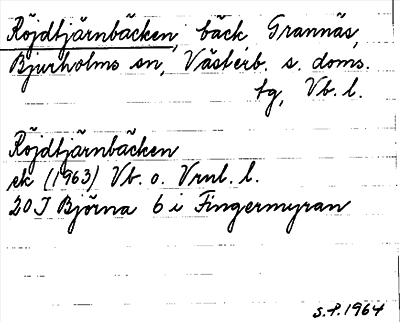 Röjdtjärnbäcken, bäck Grannäs,
Bjurholms sn, Västerb. s. doms.
tg, Vb. l.
Röjdtjärnbäcken
ek (1963) Vb. o. Vrnl. l.
20 J Björna 6 i Fingermyran
S.P. 1964